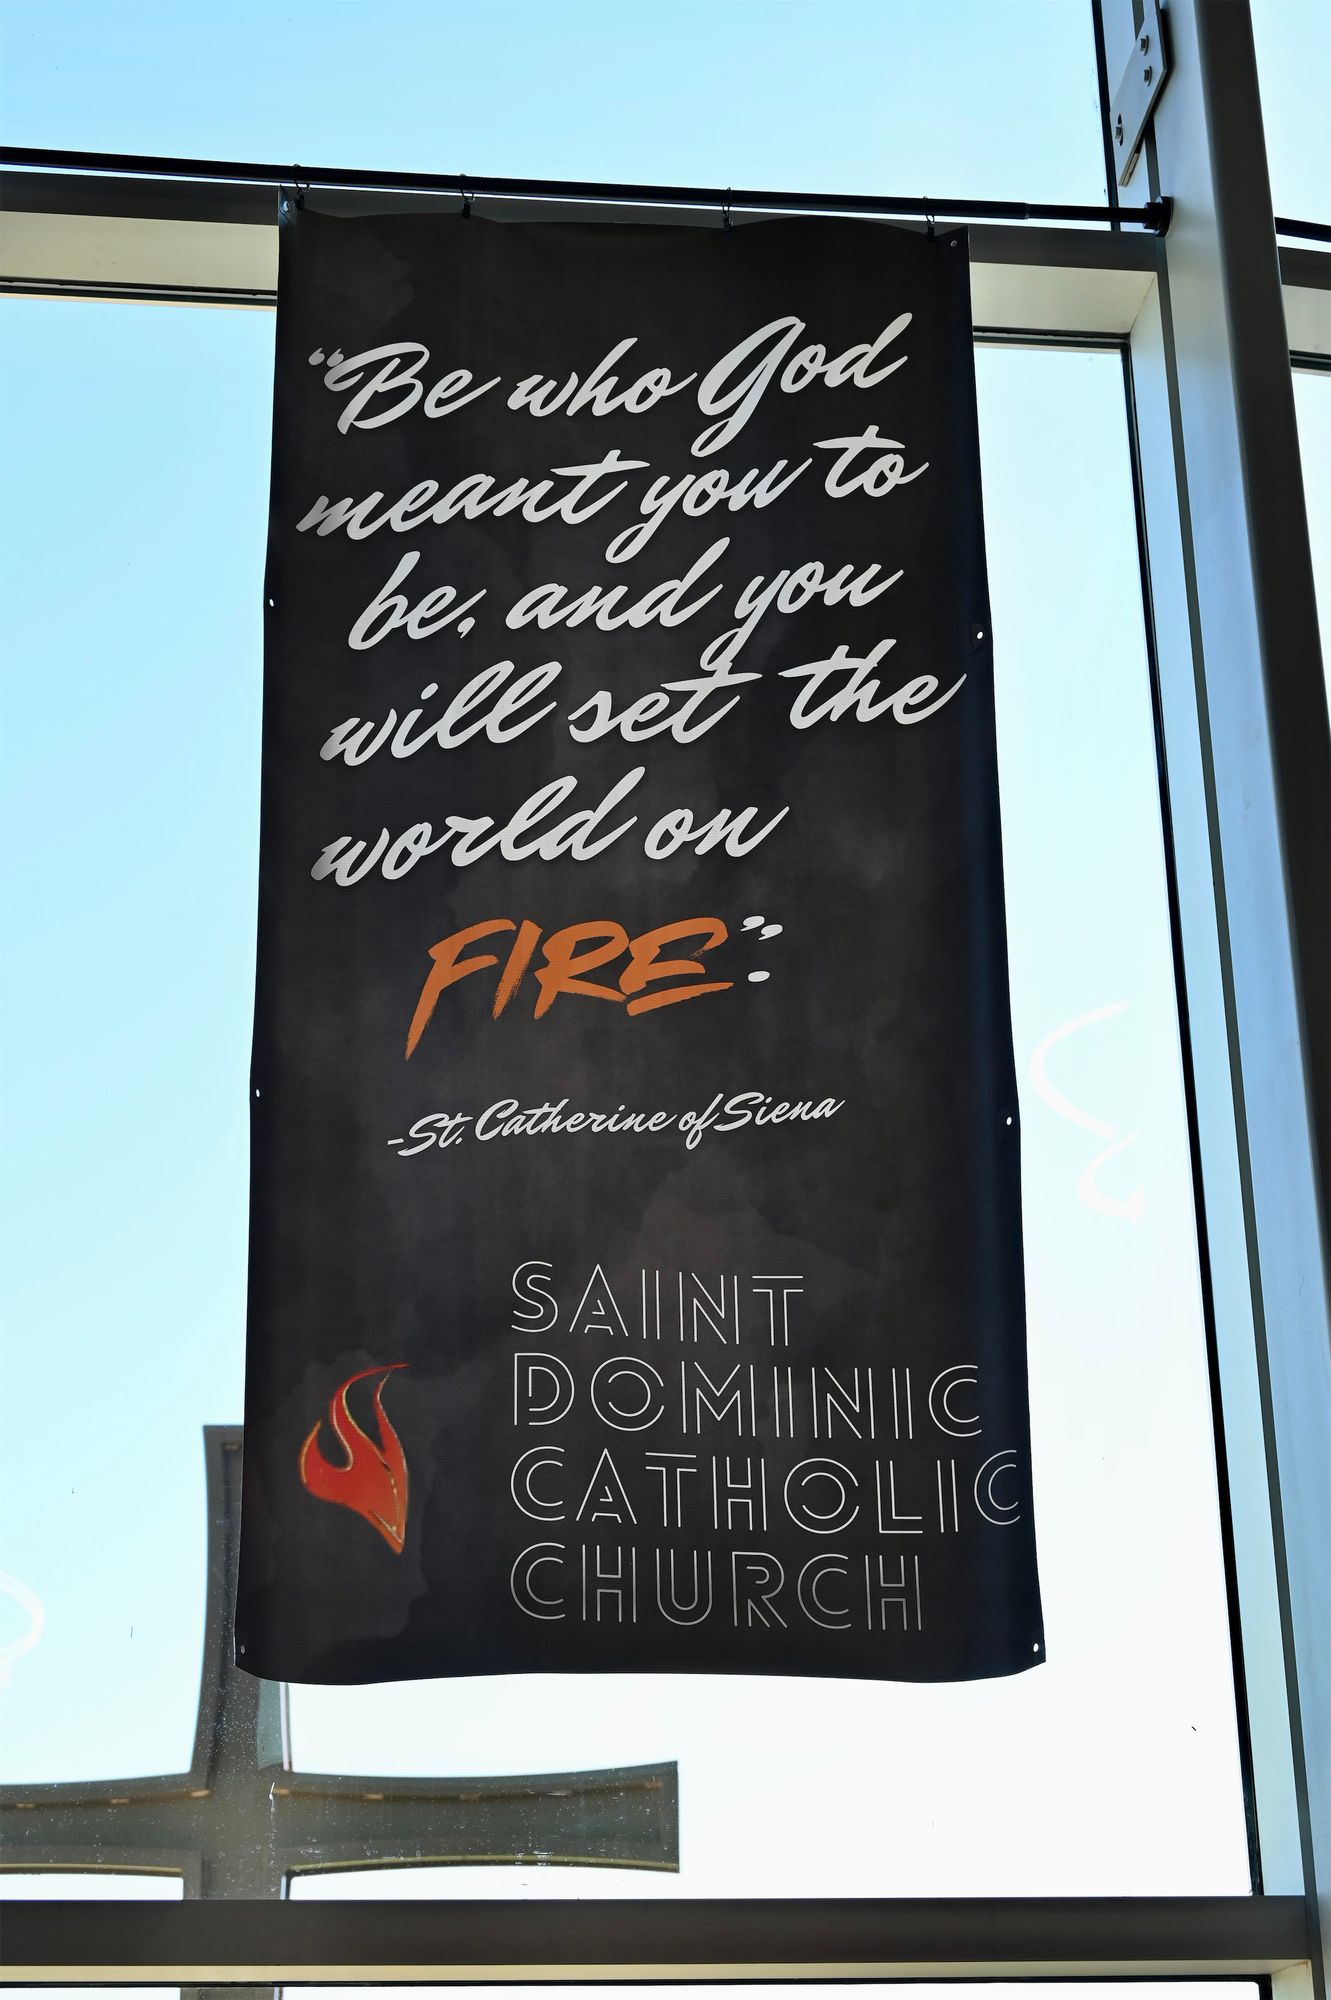 “Be who God
meant you to
be, and you
will set the
world on
FIRE”.
-St. Catherine of Siena
SAINT
DOMINIC
CATHOLIC
CHURCH